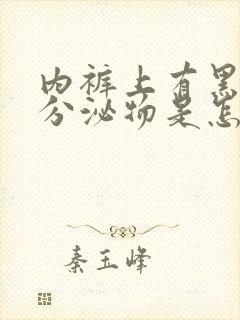 内裤上有黑
分泌物是怎
秦玉峰